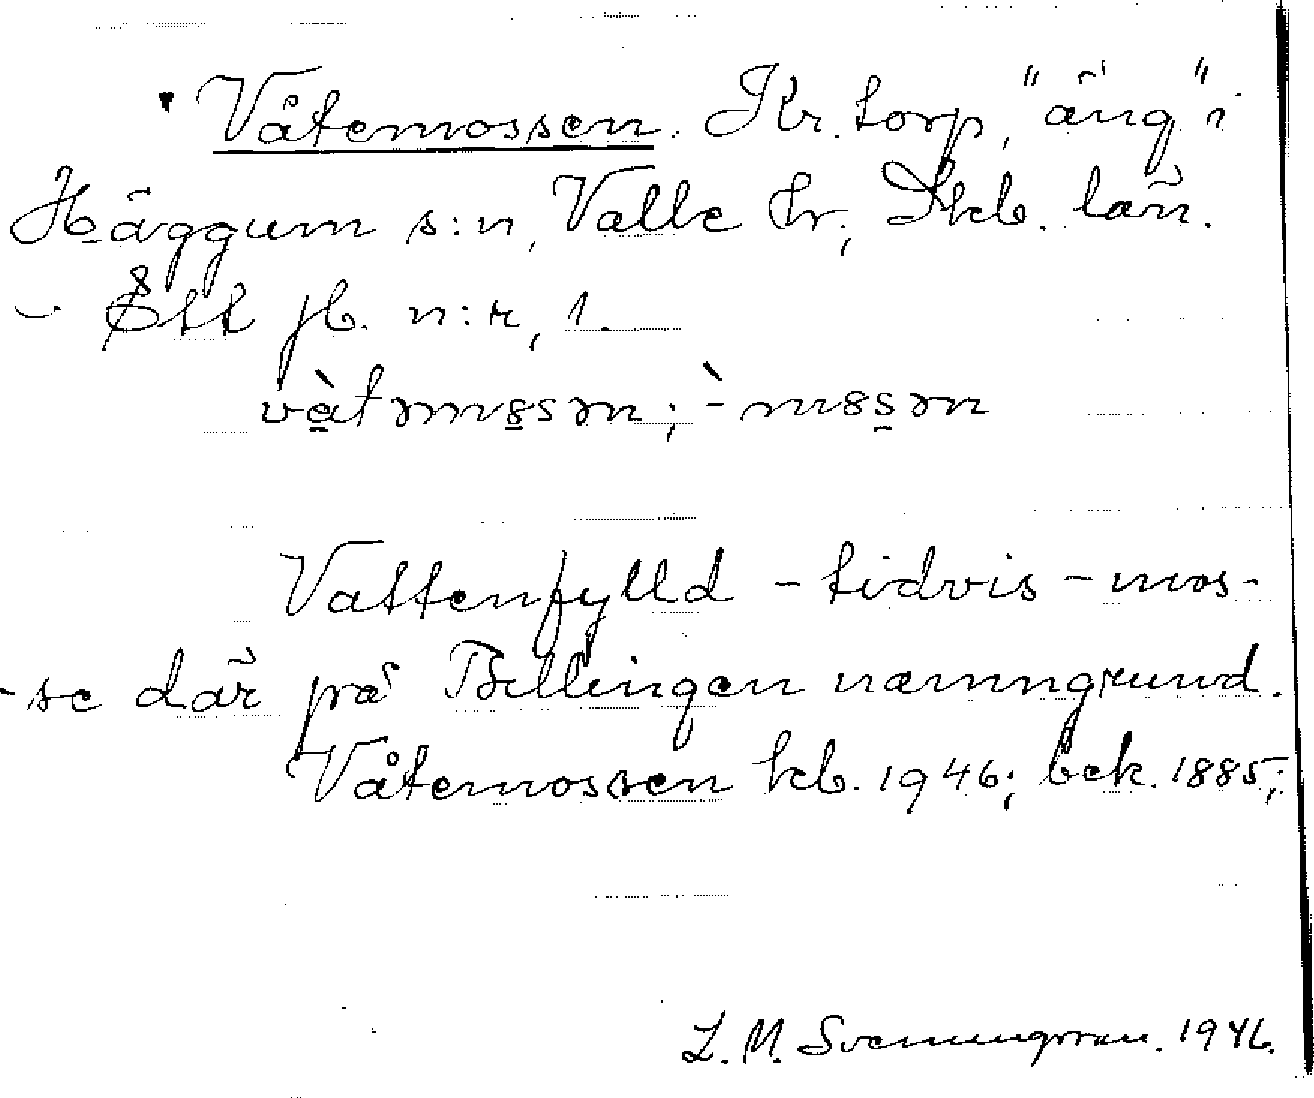 Våtemossen. Kr. torp, "äng" i
Häggum s:n, Valle hr; Skb. län.
- Ett jb. n:r, 1.
Vattenfylld - tidvis - mos-
-se där på Billingen namngrund.
Våtemossen kb. 1946; bek. 1885;
L. M. Svenungsson. 1946.